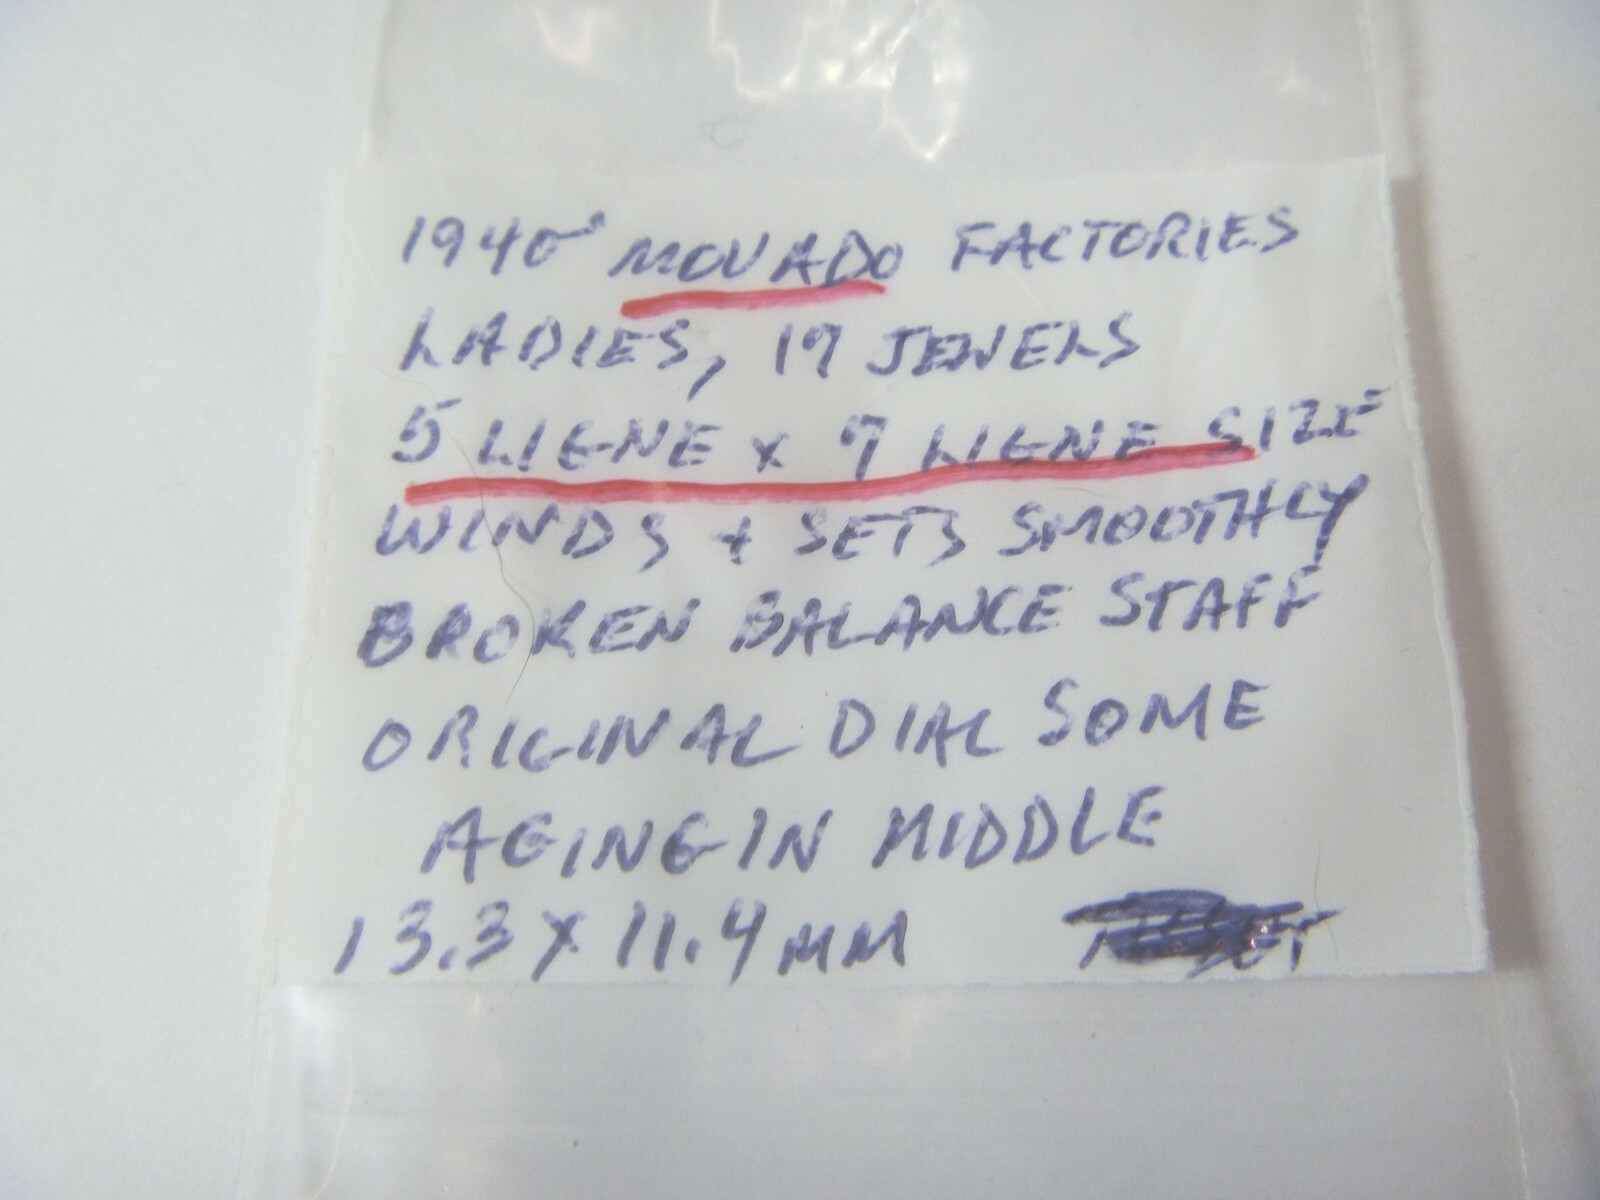 1940s MOVADO FACTORIES
LADIES, 17 JEWELS
5 LIGNE x 7 LIGNE SIZE
WINDS + SETS SMOOTHLY
BROKEN BALANCE STAFF
ORIGINAL DIAL SOME
AGING IN MIDDLE
13.3 X 11.4 MM